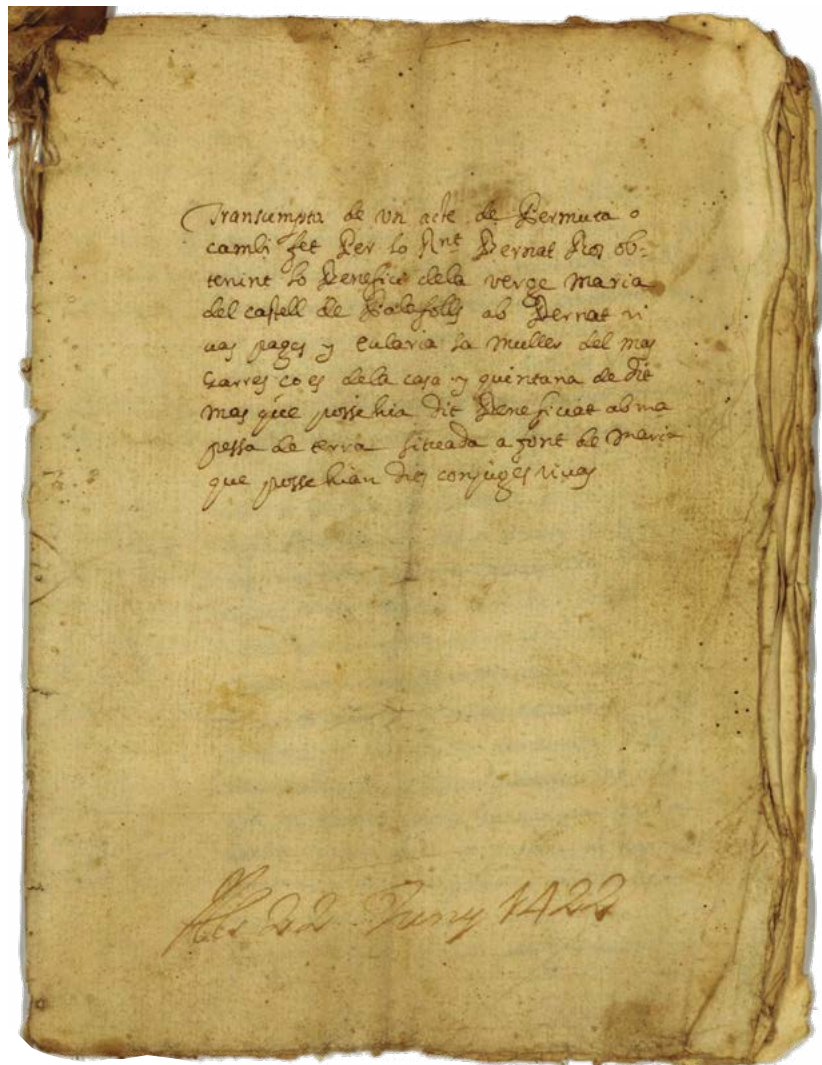 Transumpta de un acte de Permuta o
cambi fet Per lo Rnt Bernat Ros ob-
tenint lo Benefici dela verge maria
del castell de Palafolls ab Bernat vi
vas pages y eularia sa muller del mas
Garres ço es dela casa y quintana de dit
mas que possehia dit Beneficiat ab una
pessa de terra situada a font de maria
que possehian dits conjuges vivas
22 Juny 1422